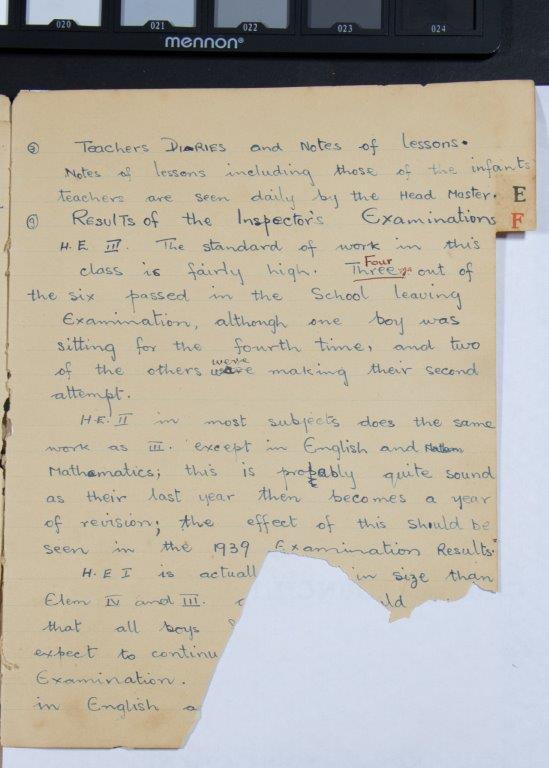 020 021 022 023 024
mennon®
③ Teachers DIARIES and Notes of lessons.
Notes of lessons including those of the infants
teachers are seen daily by the Head Master.
E
④ RESULTS of the Inspector's Examinations
F
H.E. III. The standard of work in this
Four
class is fairly high. Three out of
the six passed in the School leaving
Examination, although one boy was
sitting for the fourth time, and two
were
of the others were making their second
attempt.
H.E. II in most subjects does the same
work as III. except in English and
Mathematics; this is probably quite sound
as their last year then becomes a year
of revision; the effect of this should be
seen in the 1939 Examination Results.
H.E I is actuall in size than
Elem IV and III. ld
that all boys
expect to continu
Examination.
in English a